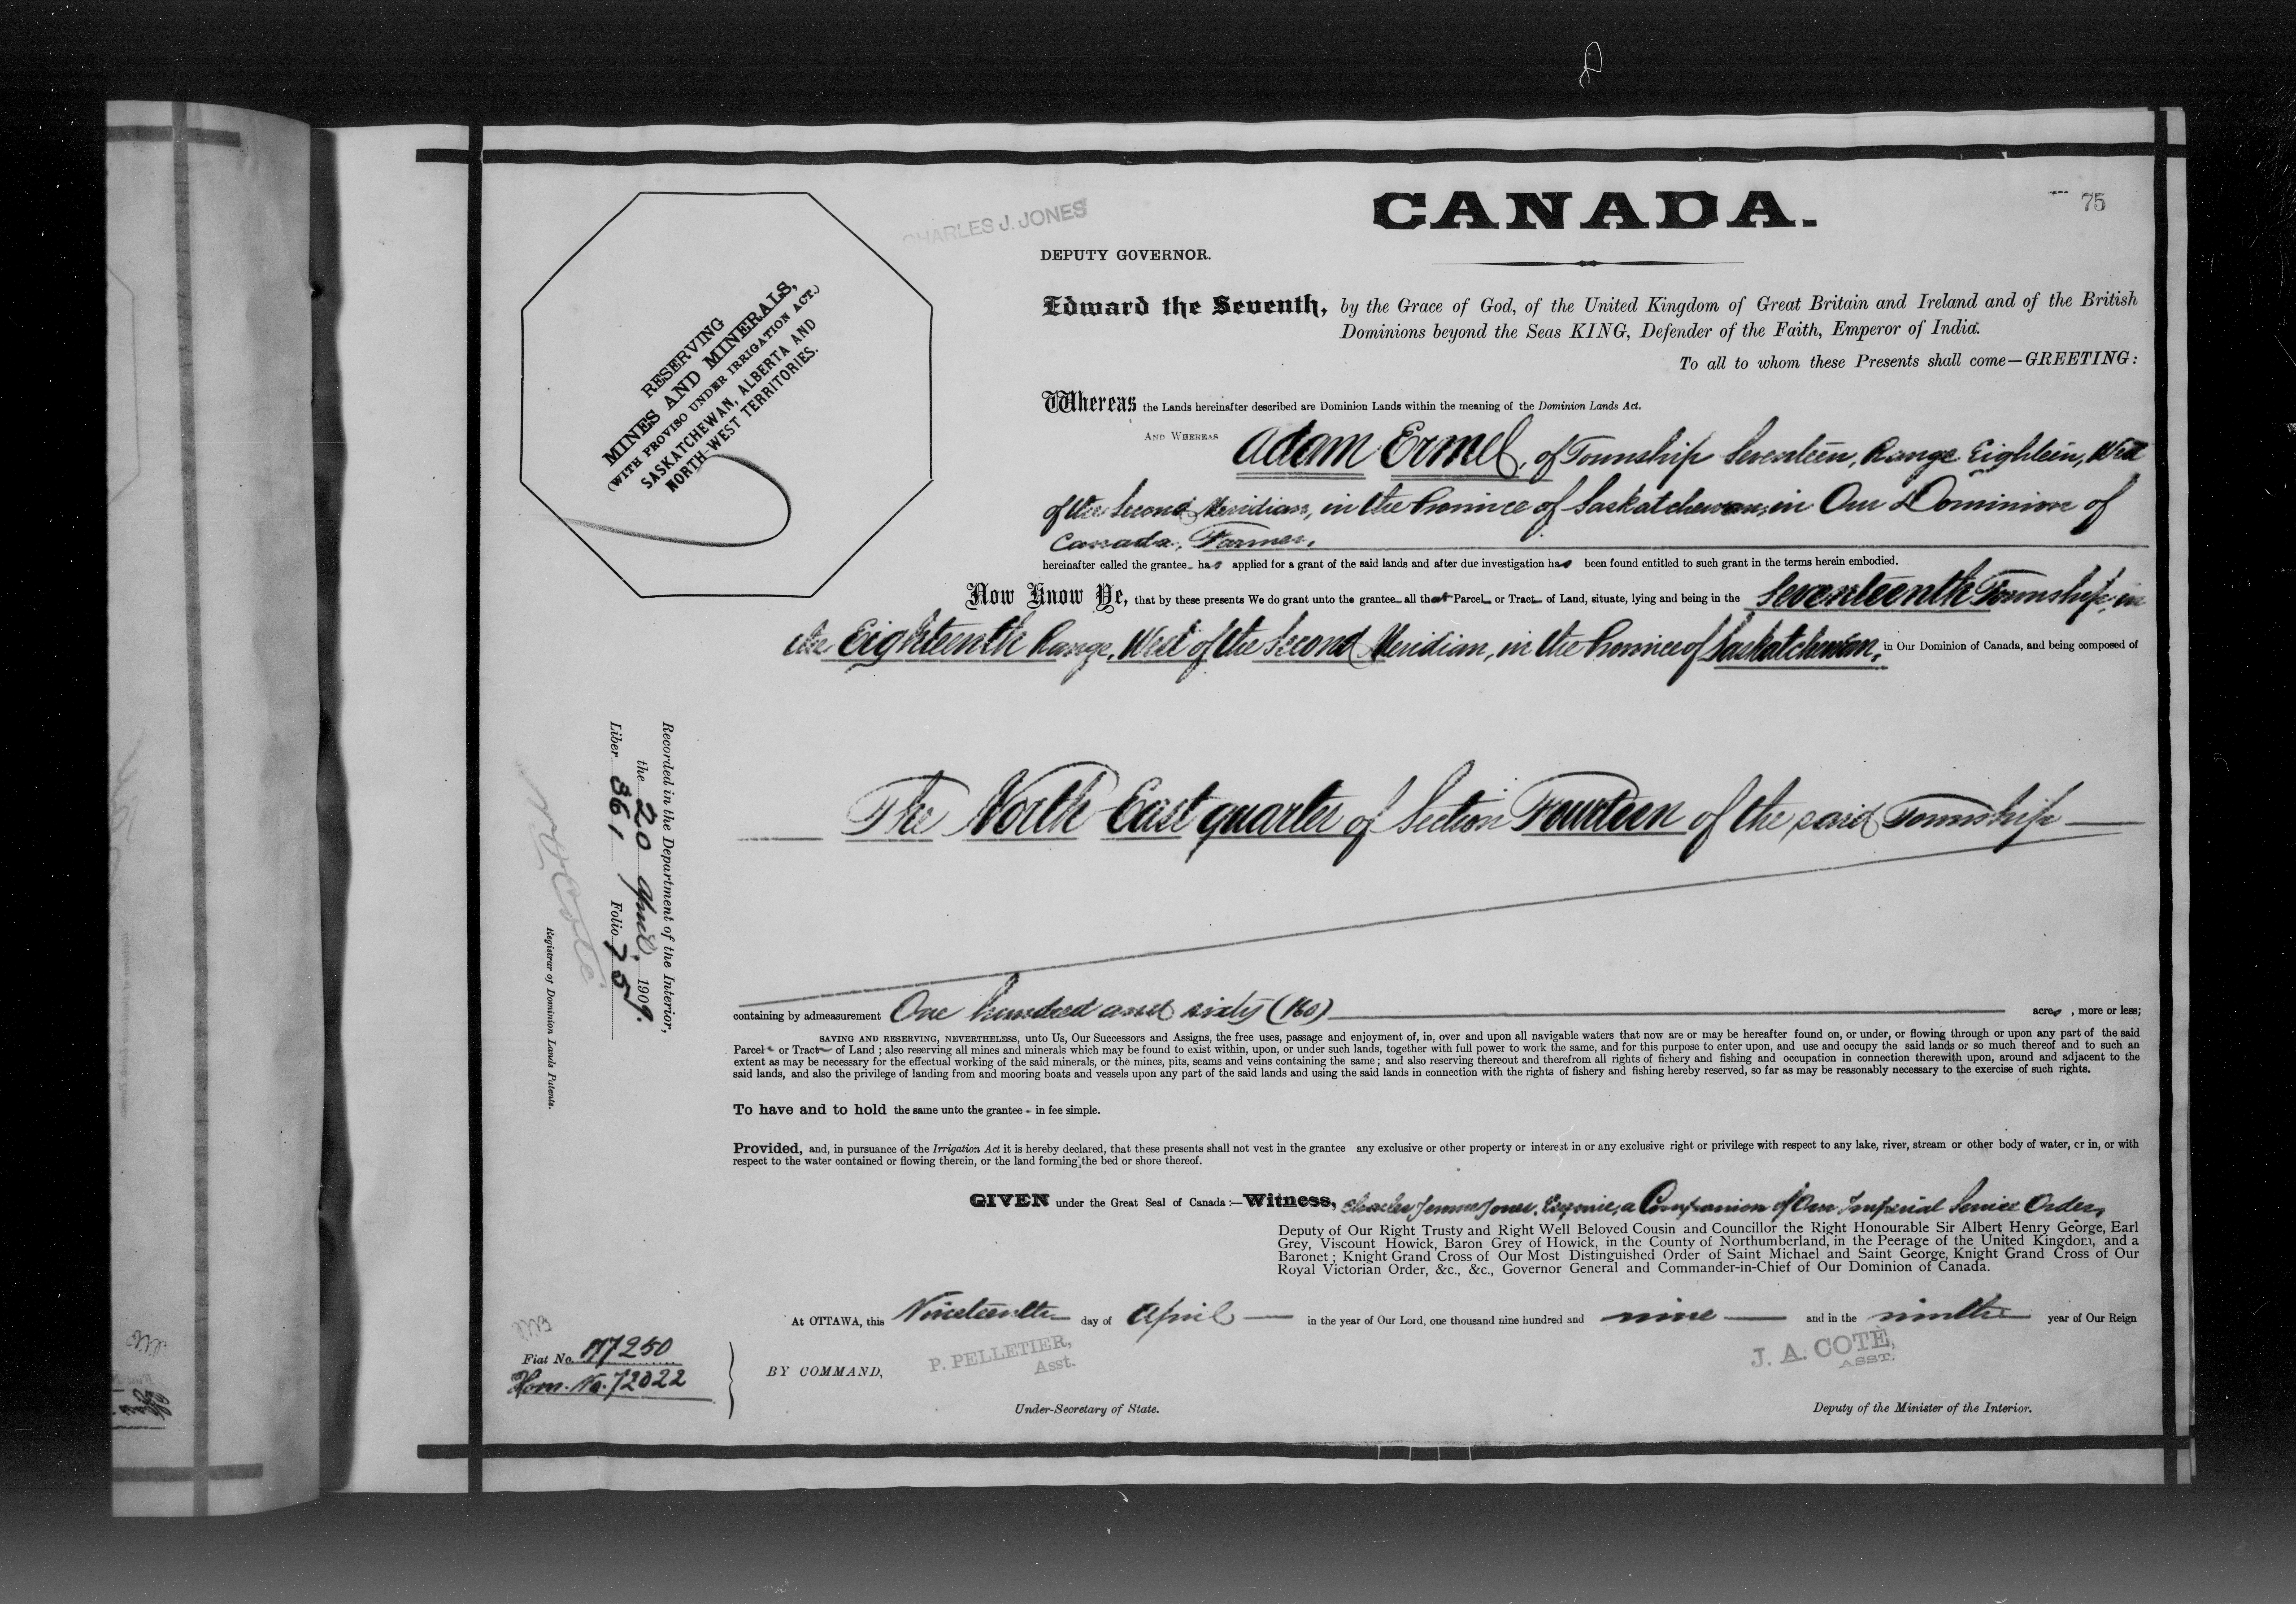 CANADA.
75
CHARLES J. JONES
DEPUTY GOVERNOR.
RESERVING
MINES AND MINERALS,
(WITH PROVISO UNDER IRRIGATION ACT.)
SASKATCHEWAN, ALBERTA AND
NORTH-WEST TERRITORIES.
Edward the Seventh, by the Grace of God, of the United Kingdom of Great Britain and Ireland and of the British
Dominions beyond the Seas KING, Defender of the Faith, Emperor of India.
To all to whom these Presents shall come—GREETING:
Whereas the Lands hereinafter described are Dominion Lands within the meaning of the Dominion Lands Act.
AND WHEREAS Adam Ermel, of Township Seventeen, Range Eighteen, West
of the Second Meridian, in the Province of Saskatchewan, in Our Dominion of
Canada, Farmer,
hereinafter called the grantee has applied for a grant of the said lands and after due investigation has been found entitled to such grant in the terms herein embodied.
Now Know Ye, that by these presents We do grant unto the grantee all that Parcel or Tract of Land, situate, lying and being in the Seventeenth Township, in
the Eighteenth Range, West of the Second Meridian, in the Province of Saskatchewan, in Our Dominion of Canada, and being composed of
The North East quarter of Section Fourteen of the said Township
containing by admeasurement One hundred and sixty (160) acres, more or less;
SAVING AND RESERVING, NEVERTHELESS, unto Us, Our Successors and Assigns, the free uses, passage and enjoyment of, in, over and upon all navigable waters that now are or may be hereafter found on, or under, or flowing through or upon any part of the said
Parcel or Tract of Land; also reserving all mines and minerals which may be found to exist within, upon, or under such lands, together with full power to work the same, and for this purpose to enter upon, and use and occupy the said lands or so much thereof and to such an
extent as may be necessary for the effectual working of the said minerals, or the mines, pits, seams and veins containing the same; and also reserving thereout and therefrom all rights of fichery and fishing and occupation in connection therewith upon, around and adjacent to the
said lands, and also the privilege of landing from and mooring boats and vessels upon any part of the said lands and using the said lands in connection with the rights of fishery and fishing hereby reserved, so far as may be reasonably necessary to the exercise of such rights.
To have and to hold the same unto the grantee in fee simple.
Provided, and, in pursuance of the Irrigation Act it is hereby declared, that these presents shall not vest in the grantee any exclusive or other property or interest in or any exclusive right or privilege with respect to any lake, river, stream or other body of water, or in, or with
respect to the water contained or flowing therein, or the land forming the bed or shore thereof.
GIVEN under the Great Seal of Canada:—Witness, Charles James Jones, Esquire, a Companion of Our Imperial Service Order,
Deputy of Our Right Trusty and Right Well Beloved Cousin and Councillor the Right Honourable Sir Albert Henry George, Earl
Grey, Viscount Howick, Baron Grey of Howick, in the County of Northumberland, in the Peerage of the United Kingdom, and a
Baronet; Knight Grand Cross of Our Most Distinguished Order of Saint Michael and Saint George, Knight Grand Cross of Our
Royal Victorian Order, &c., &c., Governor General and Commander-in-Chief of Our Dominion of Canada.
At OTTAWA, this Nineteenth day of April in the year of Our Lord, one thousand nine hundred and nine and in the ninth year of Our Reign
BY COMMAND,
P. PELLETIER,
Asst.
Under-Secretary of State.
J. A. COTÉ,
ASST.
Deputy of the Minister of the Interior.
Recorded in the Department of the Interior,
the 20 April, 1909.
Liber 361 Folio 75
N O Coté
Registrar of Dominion Lands Patents.
Fiat No. 117250
Hom. No. 72022